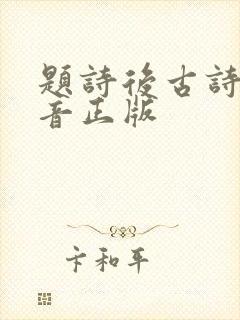 題詩後古詩
音正版
卞和平